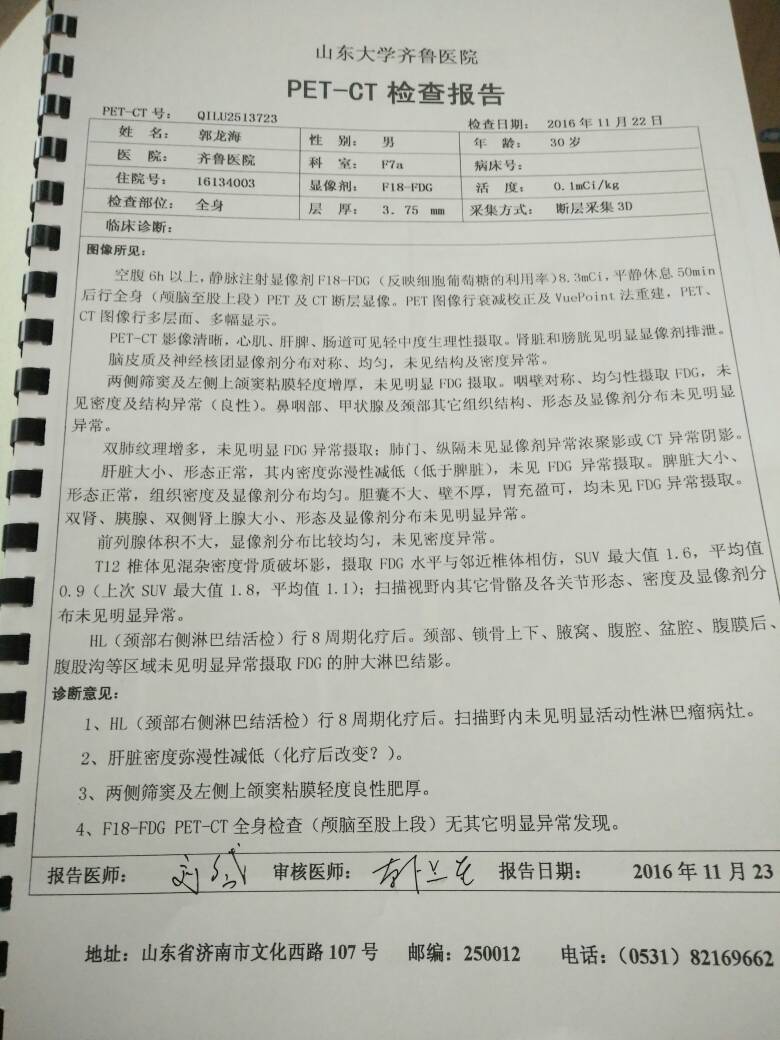 山东大学齐鲁医院
PET-CT 检查报告
PET-CT 号： QILU2513723 检查日期： 2016 年 11 月 22 日
姓 名： 郭龙海 性 别： 男 年 龄： 30 岁
医 院： 齐鲁医院 科 室： F7a 病床号：
住院号： 16134003 显像剂： F18-FDG 活 度： 0.1mCi/kg
检查部位： 全身 层 厚： 3. 75 mm 采集方式： 断层采集 3D
临床诊断：
图像所见：
空腹 6h 以上，静脉注射显像剂 F18-FDG （反映细胞葡萄糖的利用率）8.3mCi，平静休息 50min
后行全身（颅脑至股上段）PET 及 CT 断层显像。PET 图像行衰减校正及 VuePoint 法重建，PET、
CT 图像行多层面、多幅显示。
PET-CT 影像清晰，心肌、肝脾、肠道可见轻中度生理性摄取。肾脏和膀胱见明显显像剂排泄。
脑皮质及神经核团显像剂分布对称、均匀，未见结构及密度异常。
两侧筛窦及左侧上颌窦粘膜轻度增厚，未见明显 FDG 摄取。咽壁对称、均匀性摄取 FDG，未
见密度及结构异常（良性）。鼻咽部、甲状腺及颈部其它组织结构、形态及显像剂分布未见明显
异常。
双肺纹理增多，未见明显 FDG 异常摄取；肺门、纵隔未见显像剂异常浓聚影或 CT 异常阴影。
肝脏大小、形态正常，其内密度弥漫性减低（低于脾脏），未见 FDG 异常摄取。脾脏大小、
形态正常，组织密度及显像剂分布均匀。胆囊不大、壁不厚，胃充盈可，均未见 FDG 异常摄取。
双肾、胰腺、双侧肾上腺大小、形态及显像剂分布未见明显异常。
前列腺体积不大，显像剂分布比较均匀，未见密度异常。
T12 椎体见混杂密度骨质破坏影，摄取 FDG 水平与邻近椎体相仿，SUV 最大值 1.6，平均值
0.9（上次 SUV 最大值 1.8，平均值 1.1）；扫描视野内其它骨骼及各关节形态、密度及显像剂分
布未见明显异常。
HL（颈部右侧淋巴结活检）行 8 周期化疗后。颈部、锁骨上下、腋窝、腹腔、盆腔、腹膜后、
腹股沟等区域未见明显异常摄取 FDG 的肿大淋巴结影。
诊断意见：
1、HL（颈部右侧淋巴结活检）行 8 周期化疗后。扫描野内未见明显活动性淋巴瘤病灶。
2、肝脏密度弥漫性减低（化疗后改变？）。
3、两侧筛窦及左侧上颌窦粘膜轻度良性肥厚。
4、F18-FDG PET-CT 全身检查（颅脑至股上段）无其它明显异常发现。
报告医师： 审核医师： 报告日期： 2016 年 11 月 23
地址：山东省济南市文化西路 107 号 邮编：250012 电话：（0531）82169662